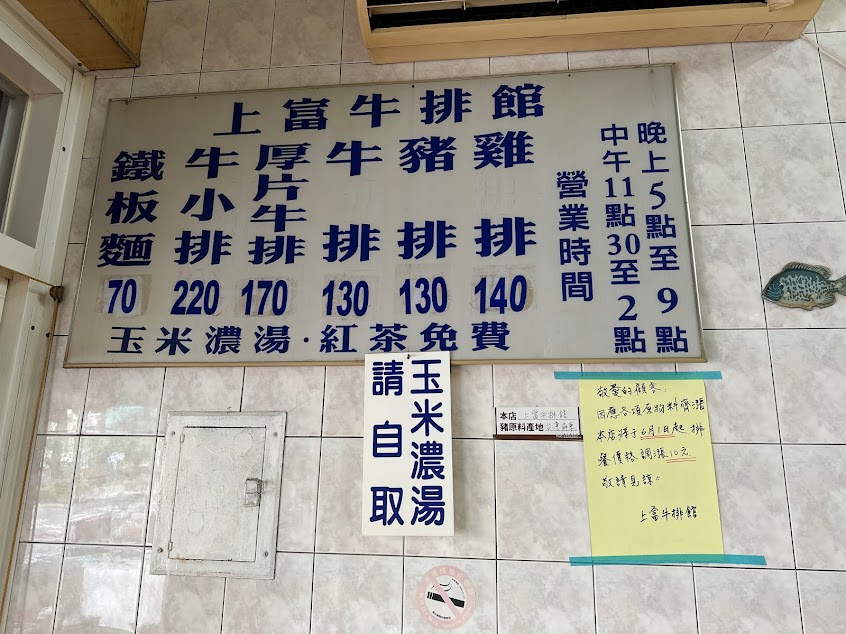 上富牛排館
鐵板麵
70
牛小排
220
厚片牛排
170
牛排
130
豬排
130
雞排
140
營業時間
中午11點30至2點
晚上5點至9點
玉米濃湯·紅茶免費
玉米濃湯
請自取
本店 上富牛排館
豬原料產地 台灣屏東
敬愛的顧客,
因應各項原物料齊漲
本店將于6月1日起 排
餐價格調漲10元
敬請見諒。
上富牛排館